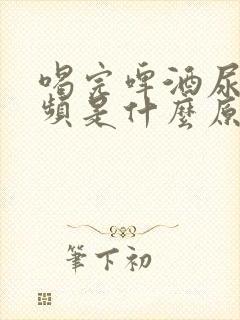 喝完啤酒尿
頻是什麼原
筆下初